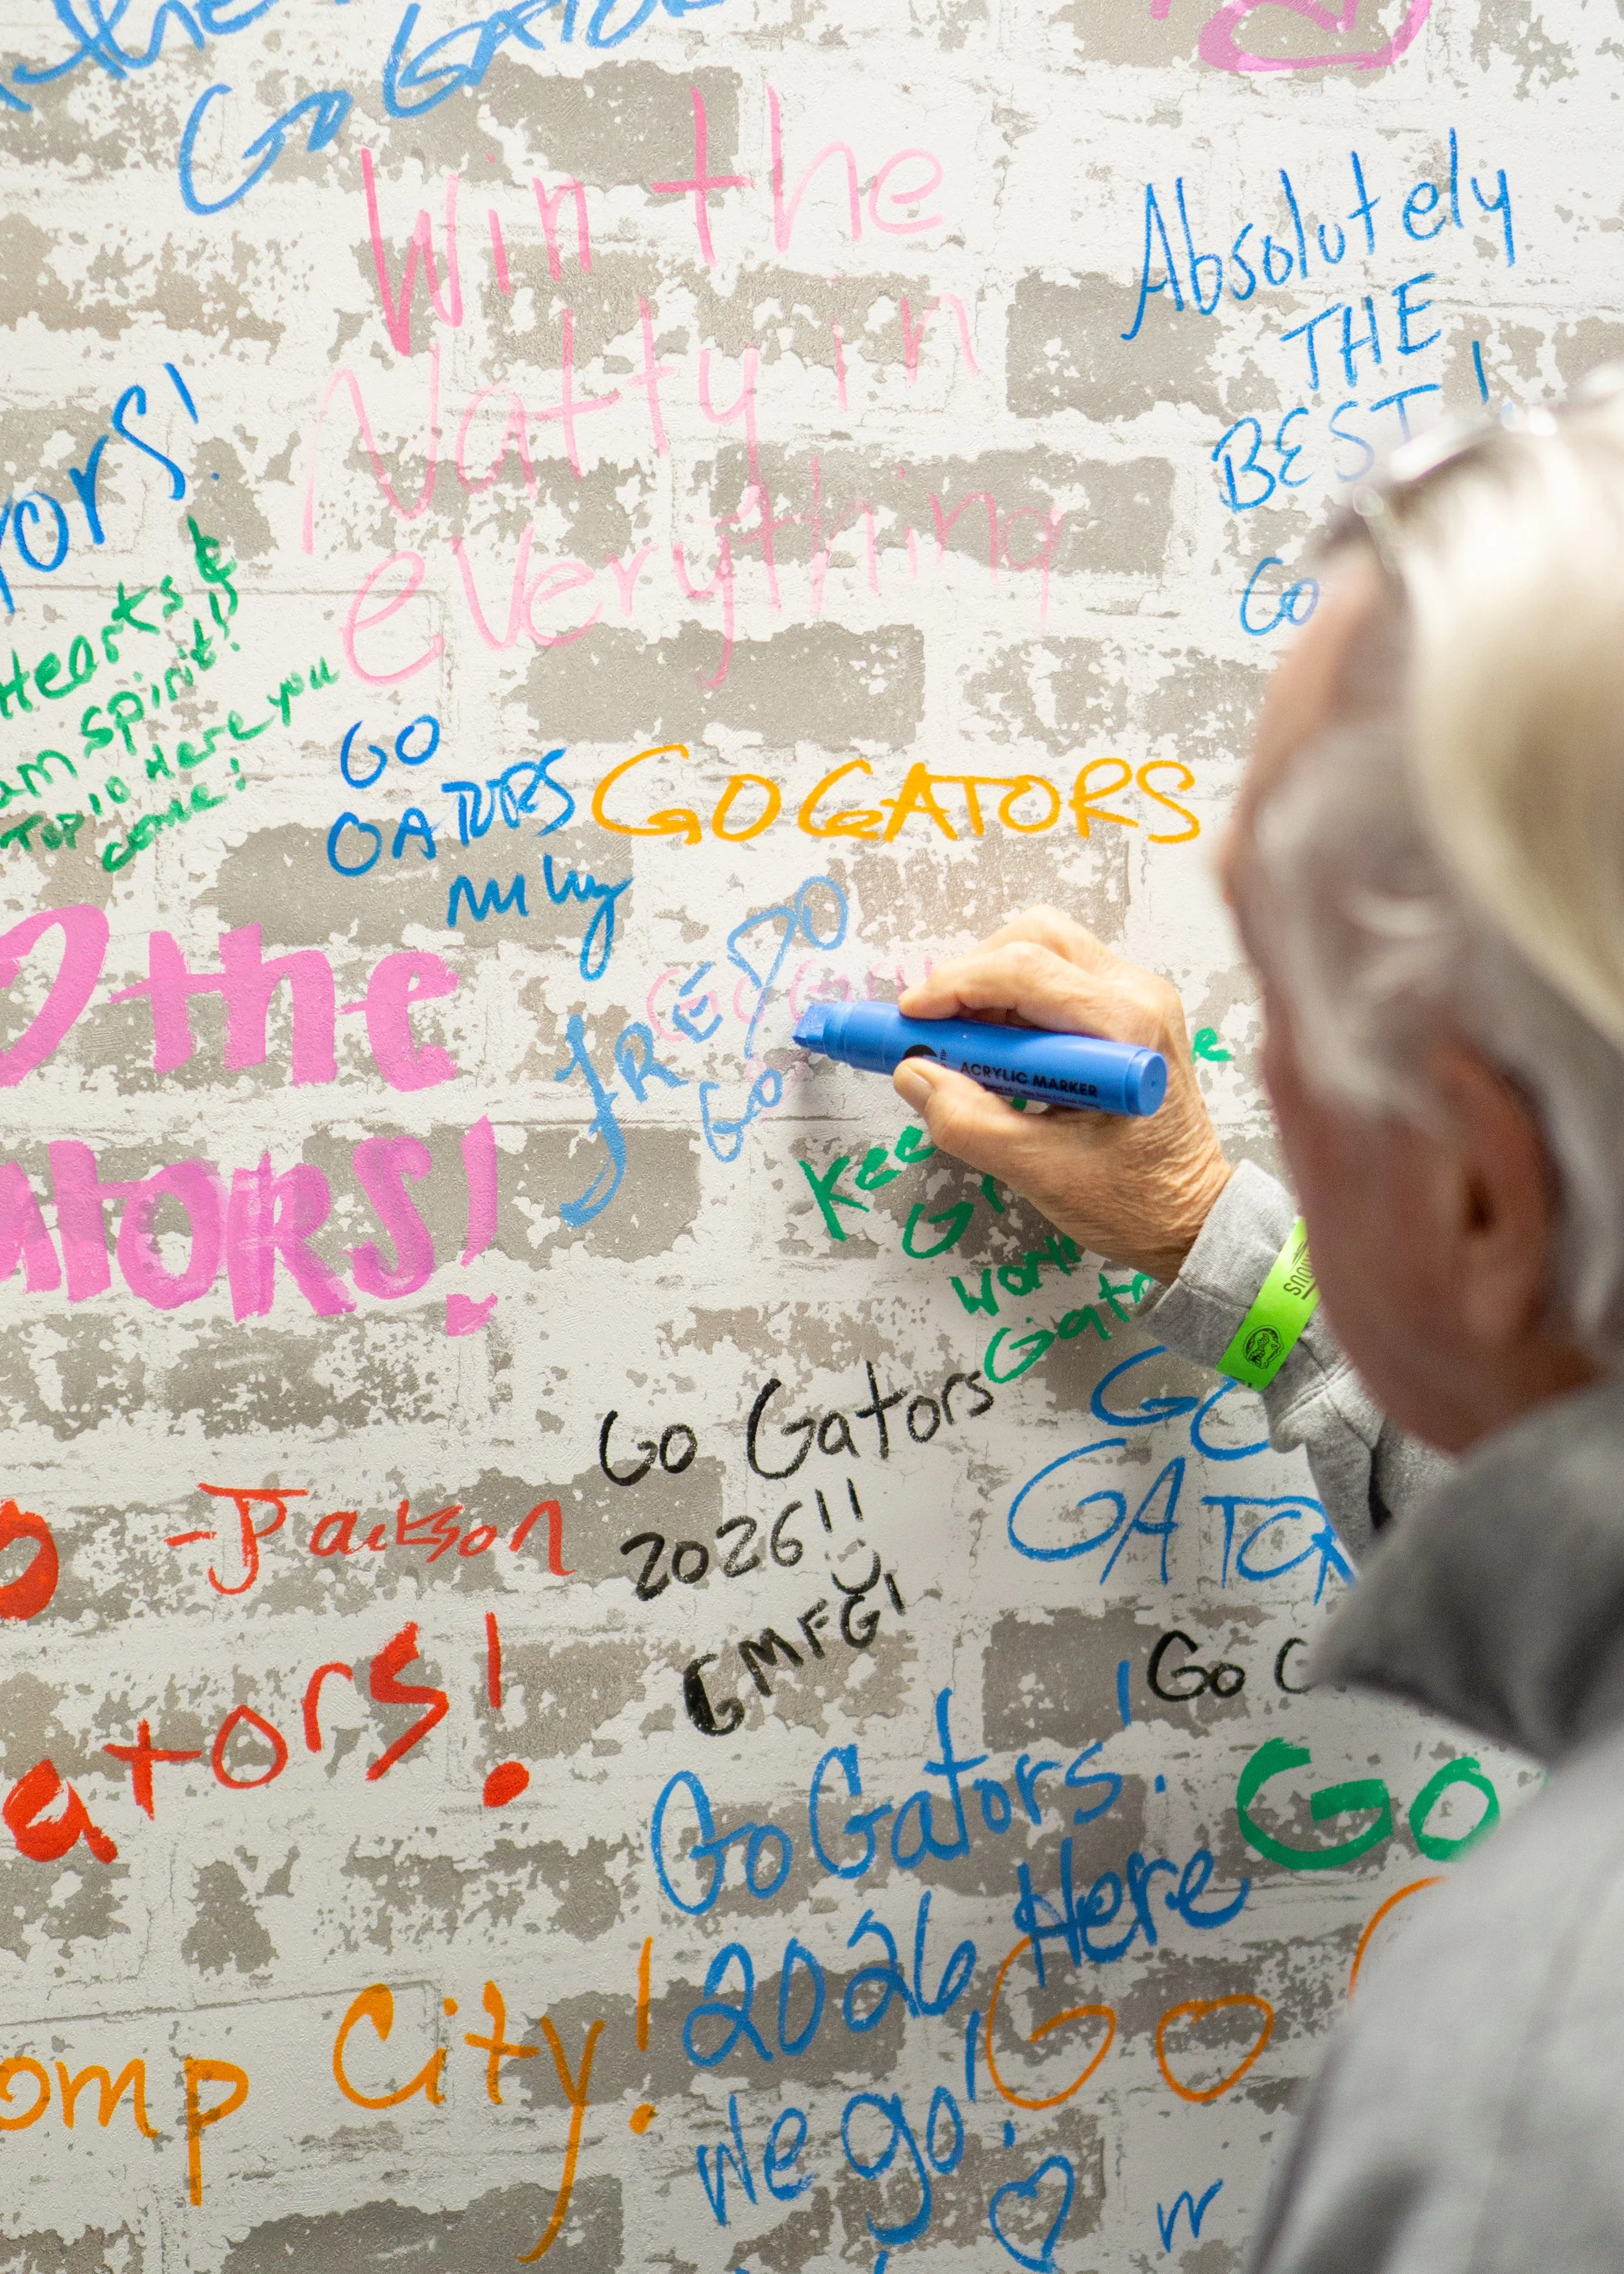 the
Go GATOR
Win the
Natty in
everything
Absolutely
THE
BEST!
Go
ors!
Hearts &
am spirit!!
Top 10 Here you
come!
GO
GATORS
GO GATORS
the
ATORS!
FREDO
GO
Kee
G
work
Gat
GO
GATOR
Go Gators
2026!!
GMFG!
-Jackson
ators!
Go G
Go Gators!
2026 Here
we go!
GO
GO
omp City!
ACRYLIC MARKER